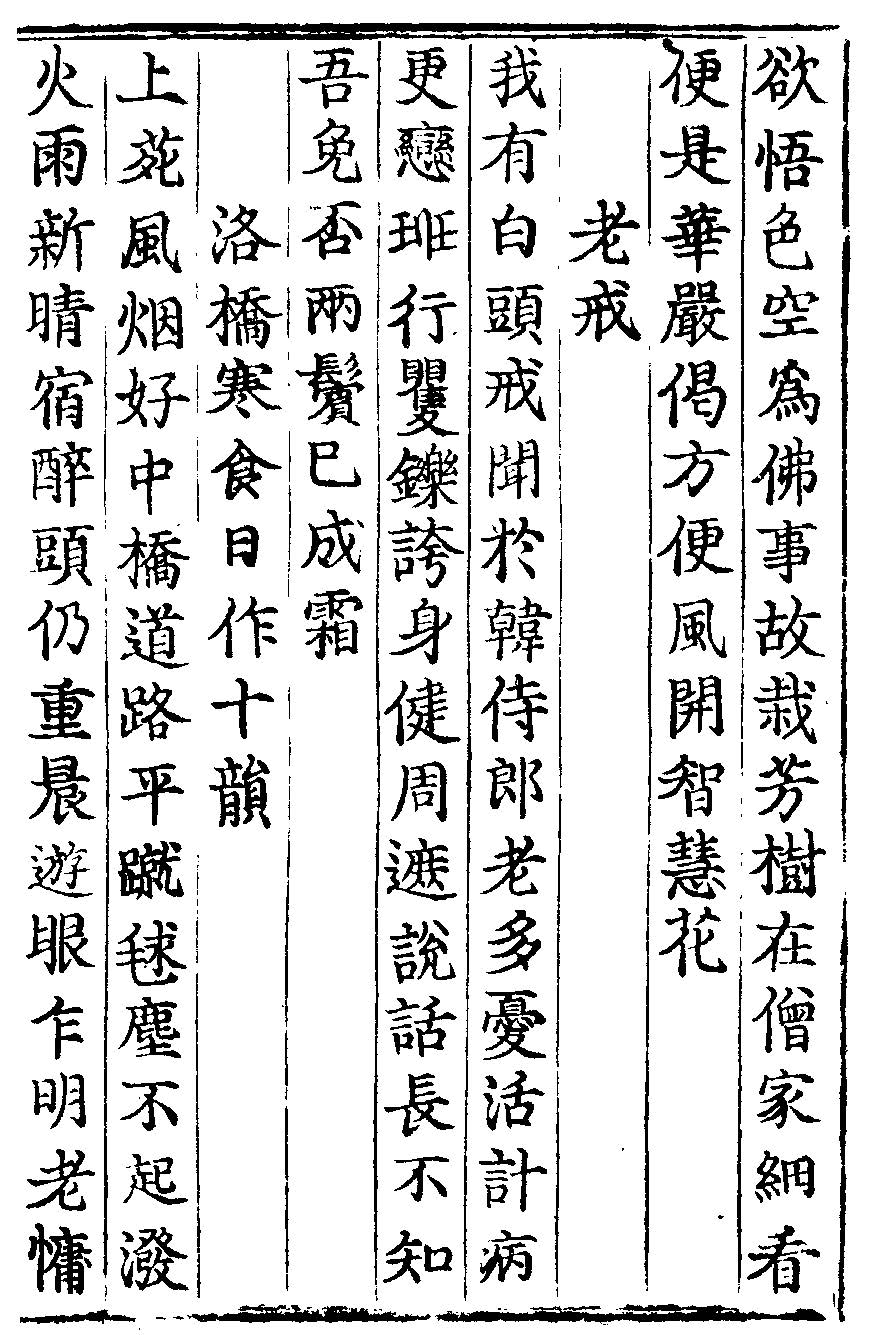 欲悟色空爲佛事故栽芳樹在僧家細看
便是華嚴偈方便風開智慧花
老戒
我有白頭戒聞於韓侍郎老多憂活計病
更戀班行矍鑠誇身健周遮說話長不知
吾免否兩鬢已成霜
洛橋寒食日作十韻
上苑風烟好中橋道路平蹴毬塵不起潑
火雨新晴宿醉頭仍重晨遊眼乍明老慵